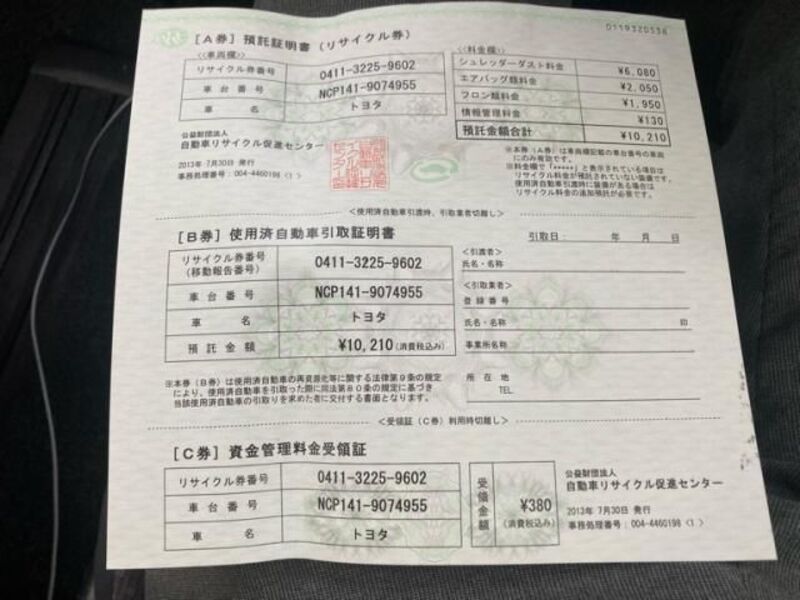 0119320538
[A券] 預託証明書 (リサイクル券)
<<車両欄>>
リサイクル券番号 0411-3225-9602
車台番号 NCP141-9074955
車名 トヨタ
<<料金欄>>
シュレッダーダスト料金 ¥6,080
エアバッグ類料金 ¥2,050
フロン類料金 ¥1,950
情報管理料金 ¥130
預託金額合計 ¥10,210
公益財団法人
自動車リサイクル促進センター
2013年 7月30日 発行
事務処理番号:004-4460198〈1〉
※本券(A券)は車両欄記載の車台番号の車両
にのみ有効です。
※料金欄で「*****」と表示されている場合は
リサイクル料金が預託されていない装備です。
使用済自動車引渡時に装備がある場合は
リサイクル料金の追加預託が必要です。
<使用済自動車引渡時、引取業者切離し>
[B券] 使用済自動車引取証明書
引取日: 年 月 日
リサイクル券番号
(移動報告番号) 0411-3225-9602
車台番号 NCP141-9074955
車名 トヨタ
預託金額 ¥10,210(消費税込み)
<引渡者>
氏名・名称
<引取業者>
登録番号
氏名・名称 印
事業所名称
所在地
TEL
※本券(B券)は使用済自動車の再資源化等に関する法律第9条の規定
により、使用済自動車を引取った際に同法第80条の規定に基づき
当該使用済自動車の引取りを求めた者に交付する書面となります。
<受領証(C券)利用時切離し>
[C券] 資金管理料金受領証
リサイクル券番号 0411-3225-9602
車台番号 NCP141-9074955
車名 トヨタ
受領金額 ¥380
(消費税込み)
公益財団法人
自動車リサイクル促進センター
2013年 7月30日 発行
事務処理番号:004-4460198〈1〉